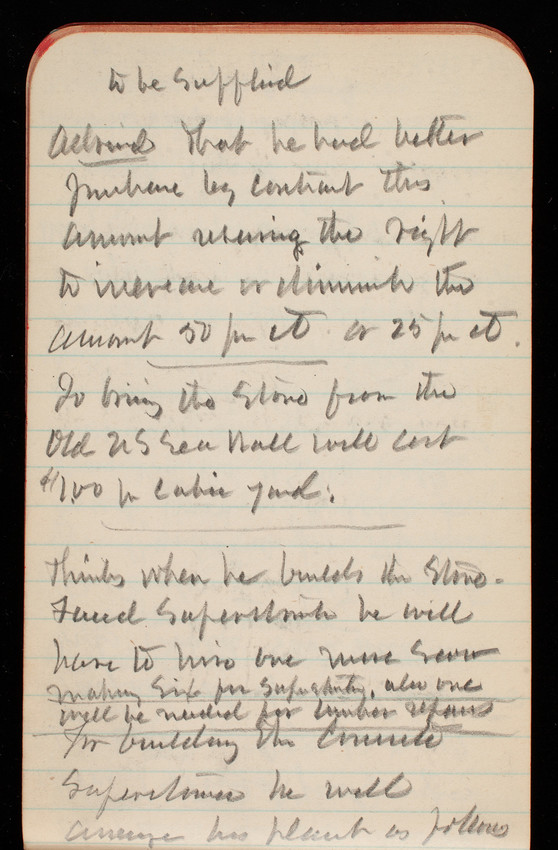 to be supplied
Advised that he had better
purchase by contract this
amount reserving the right
to increase or diminish the
amount 50 per ct or 25 per ct.
To bring the Stone from the
Old US Sea Wall will cost
$1.00 per cubic yard.
Thinks when he builds the Stone-
faced Superstructure he will
have to hire one more Scow
making Six for Superstructure, also one
will be needed for timber repairs
For building the Concrete
Superstructure he will
arrange his plant as follows